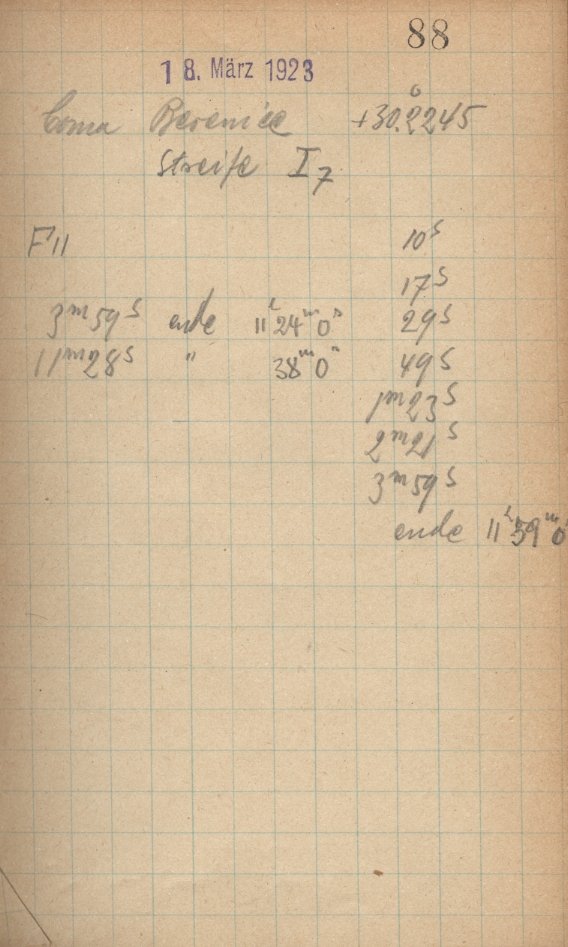 88
18. März 1923
Coma Berenice +30.°2245
Streife I₇
F11 10ˢ
17ˢ
3ᵐ59ˢ ende 11ʰ24ᵐ0ˢ 29ˢ
11ᵐ28ˢ " 38ᵐ0ˢ 49ˢ
1ᵐ23ˢ
2ᵐ21ˢ
3ᵐ59ˢ
ende 11ʰ59ᵐ0ˢ